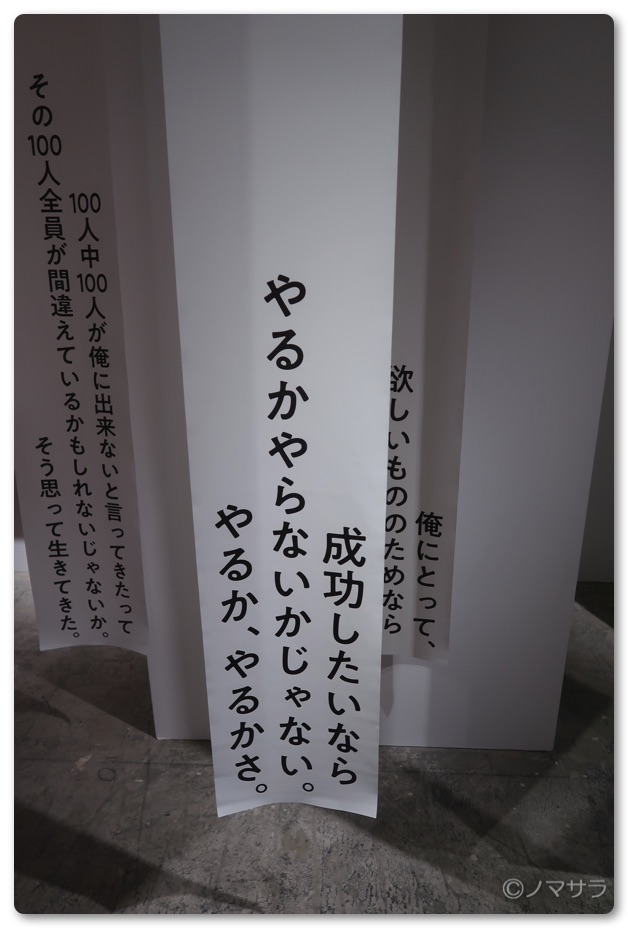 俺にとって、
欲しいもののためなら
成功したいなら
やるかやらないかじゃない。
やるか、やるかさ。
100人中100人が俺に出来ないと言ってきたって
その100人全員が間違えているかもしれないじゃないか。
そう思って生きてきた。
©ノマサラ